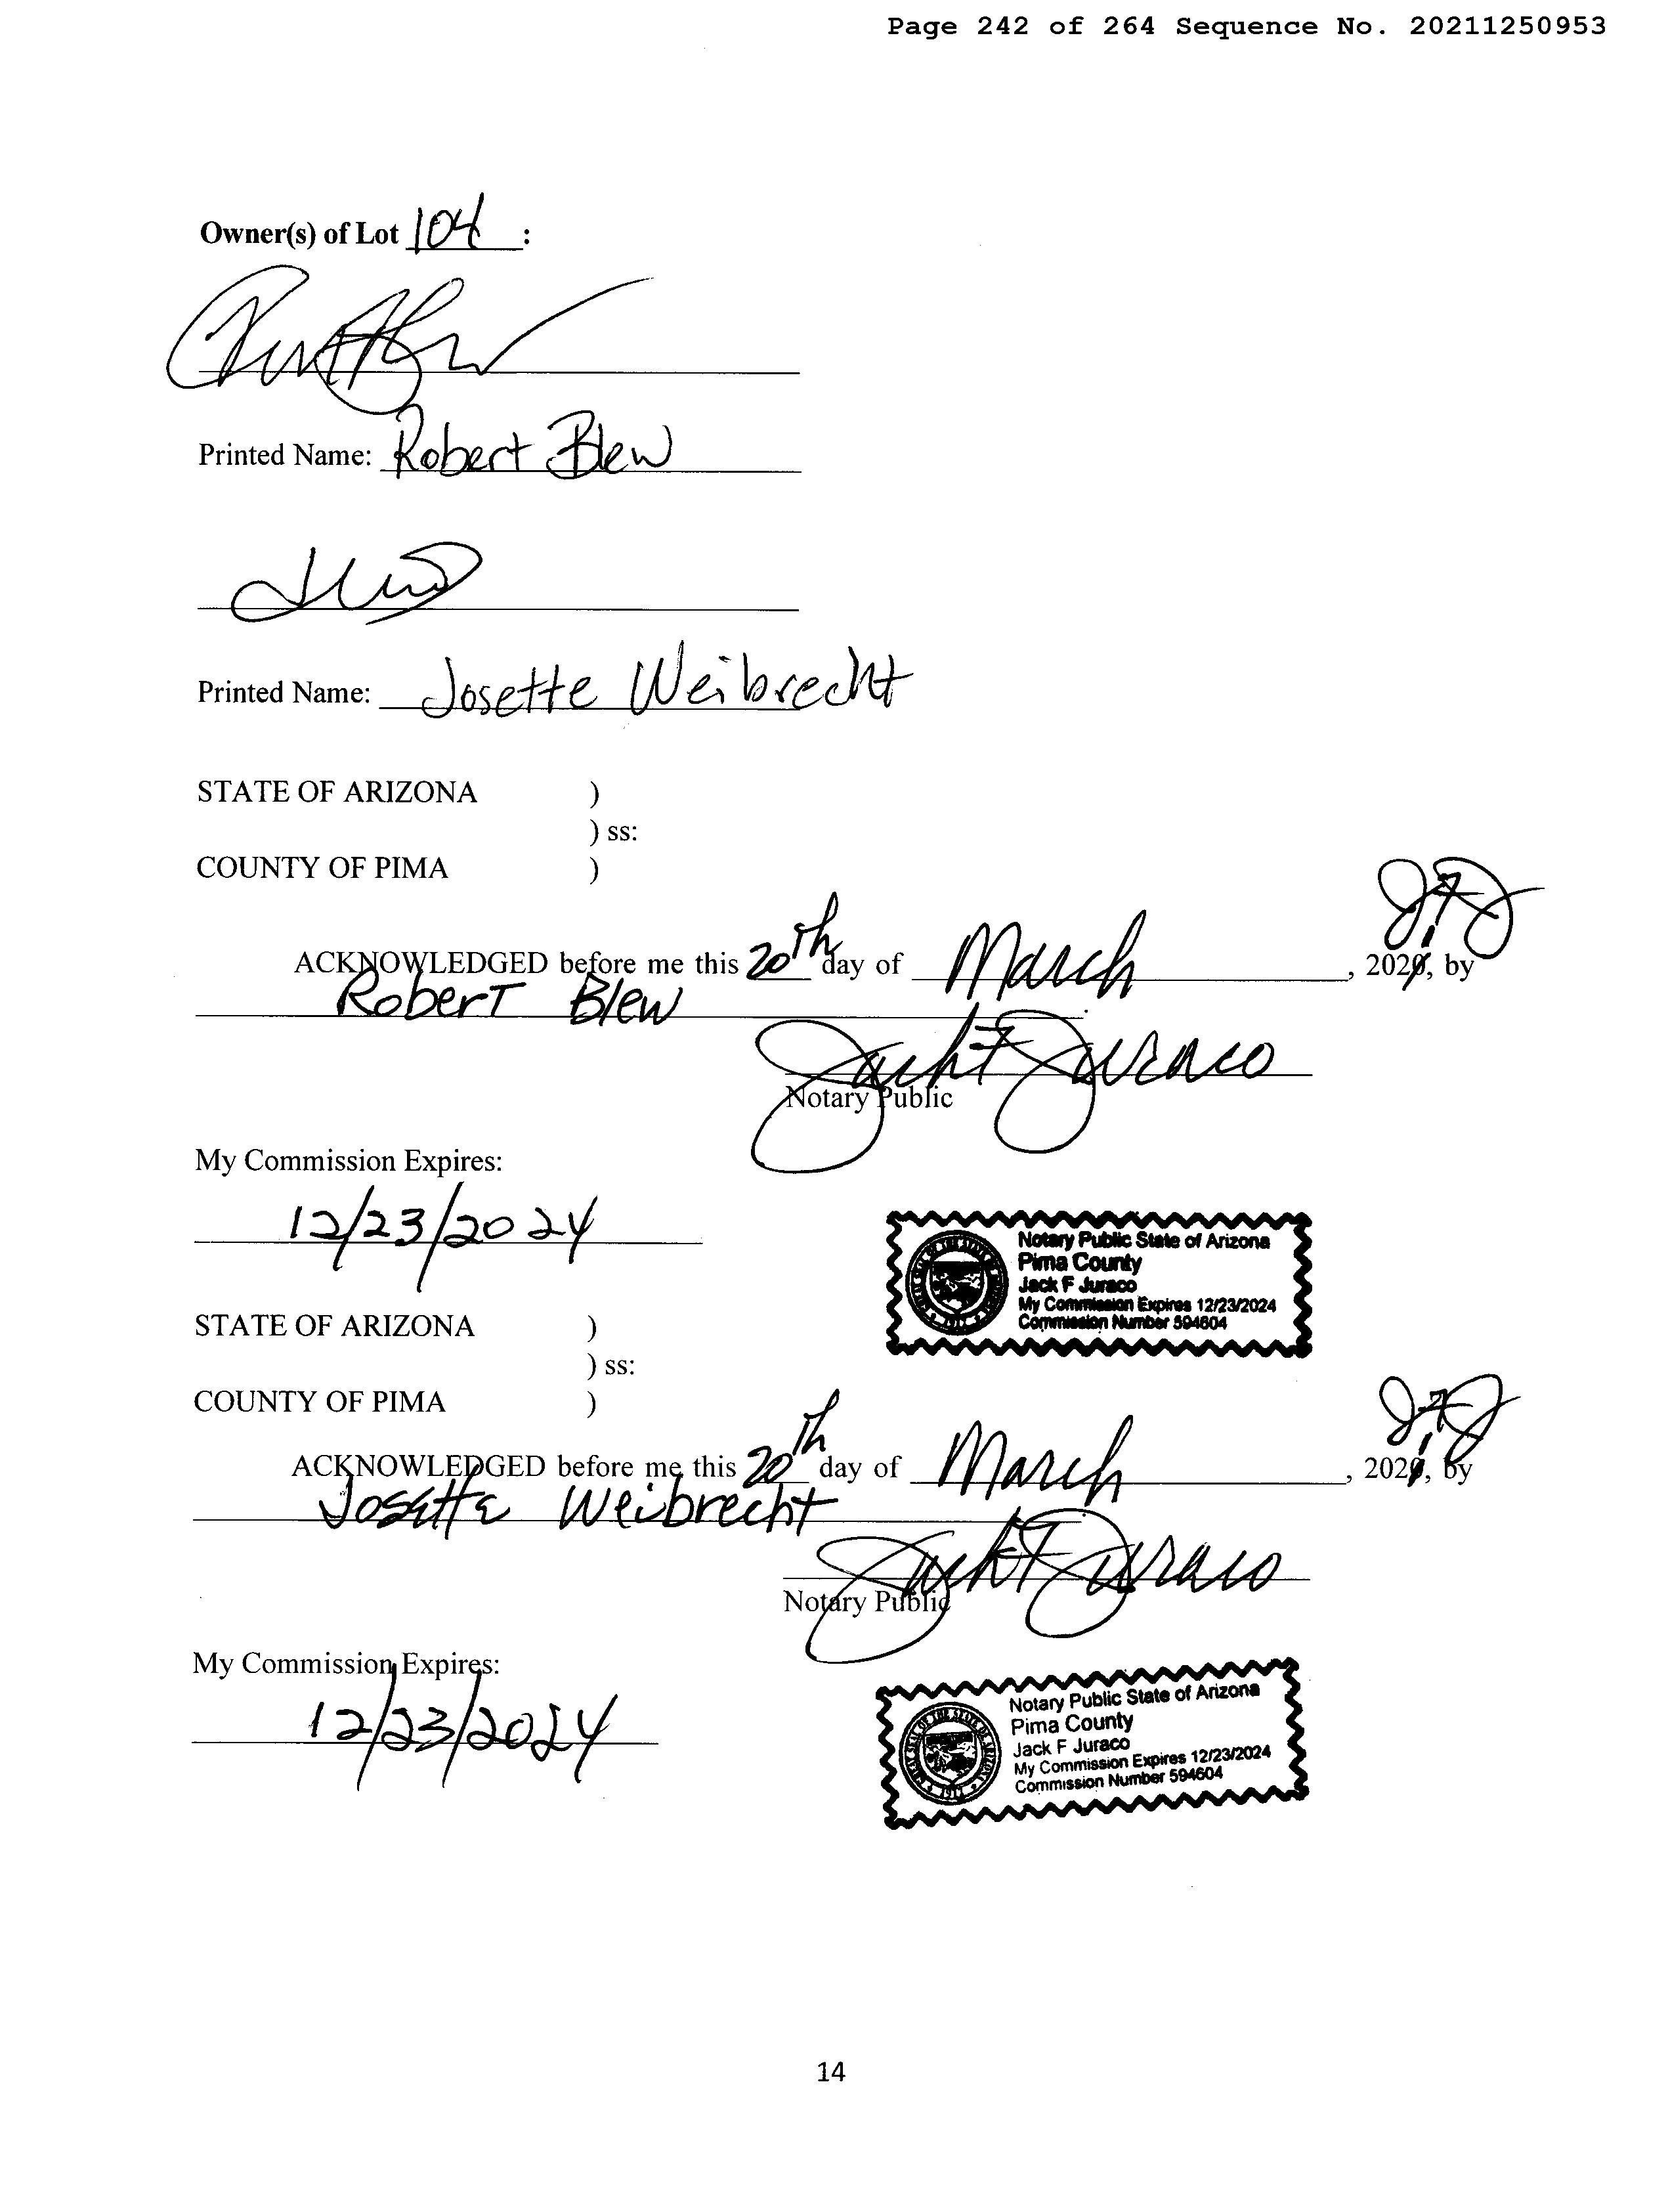 Page 242 of 264 Sequence No. 20211250953
Owner(s) of Lot 104 :
Printed Name: Robert Blew
Printed Name: Josette Weibrecht
STATE OF ARIZONA )
) ss:
COUNTY OF PIMA )
JFJ
ACKNOWLEDGED before me this 20th day of March, 2021, by
Robert Blew
Jack F Juraco
Notary Public
My Commission Expires:
12/23/2024
Notary Public State of Arizona
Pima County
Jack F Juraco
My Commission Expires 12/23/2024
Commission Number 594604
STATE OF ARIZONA )
) ss:
COUNTY OF PIMA )
JFJ
ACKNOWLEDGED before me this 20th day of March, 2021, by
Josette Weibrecht
Jack F Juraco
Notary Public
My Commission Expires:
12/23/2024
Notary Public State of Arizona
Pima County
Jack F Juraco
My Commission Expires 12/23/2024
Commission Number 594604
14